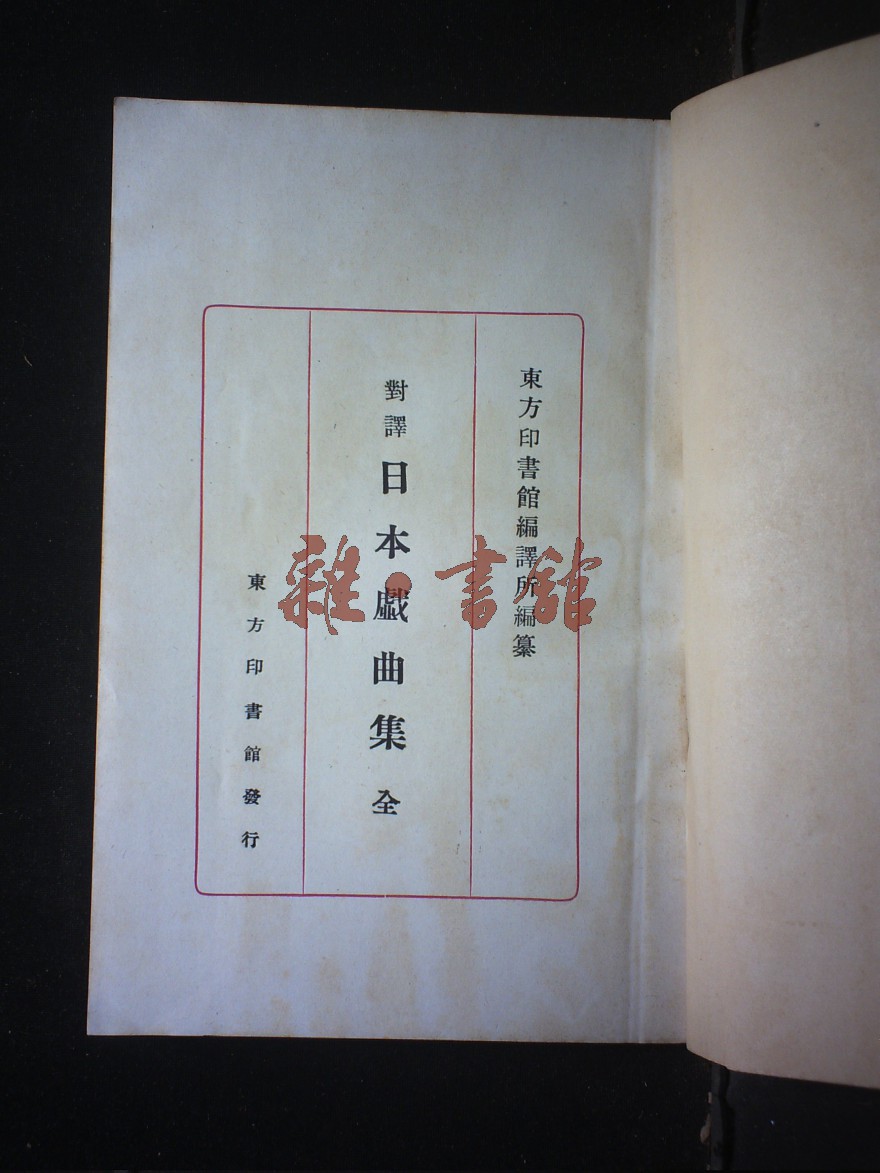 東方印書館編譯所編纂
對譯 日本戯曲集 全
東方印書館發行
雜·書館